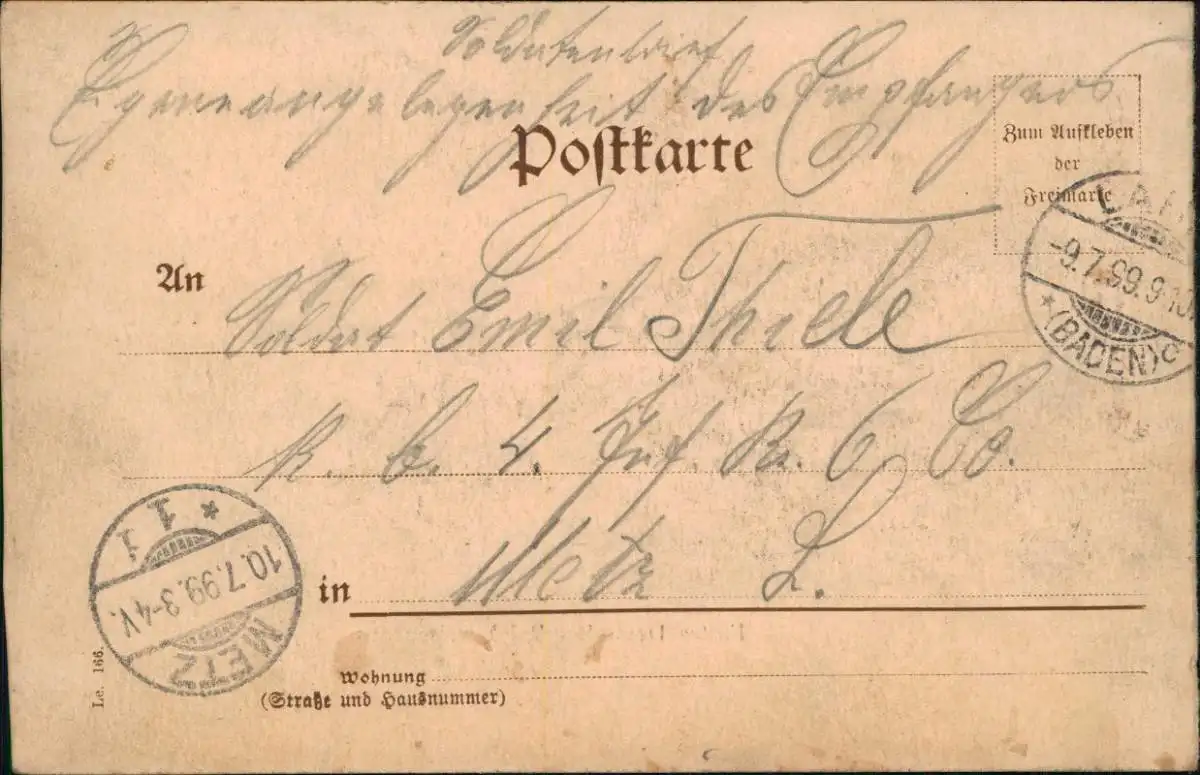 Soldatenbrief
Eigene angelegenheit des Empfängers
Postkarte
Zum Aufkleben
der
Freimarke
LAHR
-9.7.99.9-10
(BADEN) c
An
Soldat Emil Thiele
K. b. 4. Inf. R. 6 Co.
in Metz L.
* 1 1
10.7.99.3-4V.
METZ
Wohnung
(Straße und Hausnummer)
Le. 166.